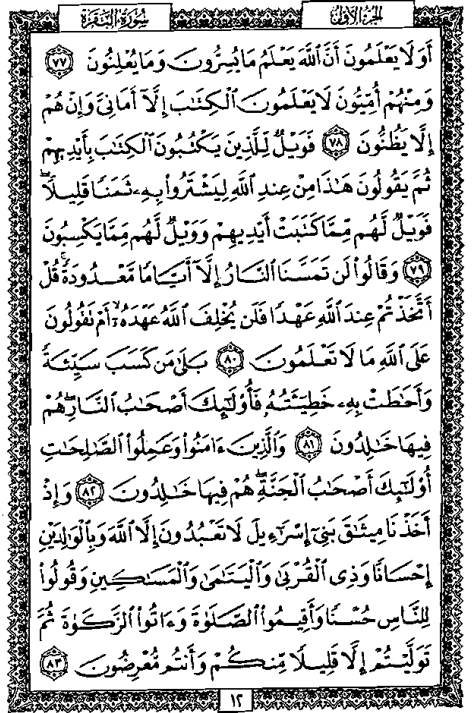 الجزء الأول
سورة البقرة
أَوَلَا يَعْلَمُونَ أَنَّ ٱللَّهَ يَعْلَمُ مَا يُسِرُّونَ وَمَا يُعْلِنُونَ ٧٧
وَمِنْهُمْ أُمِّيُّونَ لَا يَعْلَمُونَ ٱلْكِتَٰبَ إِلَّآ أَمَانِيَّ وَإِنْ هُمْ
إِلَّا يَظُنُّونَ ٧٨ فَوَيْلٌ لِّلَّذِينَ يَكْتُبُونَ ٱلْكِتَٰبَ بِأَيْدِيهِمْ
ثُمَّ يَقُولُونَ هَٰذَا مِنْ عِندِ ٱللَّهِ لِيَشْتَرُوا۟ بِهِۦ ثَمَنًا قَلِيلًا ۖ
فَوَيْلٌ لَّهُم مِّمَّا كَتَبَتْ أَيْدِيهِمْ وَوَيْلٌ لَّهُم مِّمَّا يَكْسِبُونَ
٧٩ وَقَالُوا۟ لَن تَمَسَّنَا ٱلنَّارُ إِلَّآ أَيَّامًا مَّعْدُودَةً ۚ قُلْ
أَتَّخَذْتُمْ عِندَ ٱللَّهِ عَهْدًا فَلَن يُخْلِفَ ٱللَّهُ عَهْدَهُۥٓ ۖ أَمْ تَقُولُونَ
عَلَى ٱللَّهِ مَا لَا تَعْلَمُونَ ٨٠ بَلَىٰ مَن كَسَبَ سَيِّئَةً
وَأَحَٰطَتْ بِهِۦ خَطِيٓـَٔتُهُۥ فَأُو۟لَٰٓئِكَ أَصْحَٰبُ ٱلنَّارِ ۖ هُمْ
فِيهَا خَٰلِدُونَ ٨١ وَٱلَّذِينَ ءَامَنُوا۟ وَعَمِلُوا۟ ٱلصَّٰلِحَٰتِ
أُو۟لَٰٓئِكَ أَصْحَٰبُ ٱلْجَنَّةِ ۖ هُمْ فِيهَا خَٰلِدُونَ ٨٢ وَإِذْ
أَخَذْنَا مِيثَٰقَ بَنِىٓ إِسْرَٰٓءِيلَ لَا تَعْبُدُونَ إِلَّا ٱللَّهَ وَبِٱلْوَٰلِدَيْنِ
إِحْسَانًا وَذِى ٱلْقُرْبَىٰ وَٱلْيَتَٰمَىٰ وَٱلْمَسَٰكِينِ وَقُولُوا۟
لِلنَّاسِ حُسْنًا وَأَقِيمُوا۟ ٱلصَّلَوٰةَ وَءَاتُوا۟ ٱلزَّكَوٰةَ ثُمَّ
تَوَلَّيْتُمْ إِلَّا قَلِيلًا مِّنكُمْ وَأَنتُم مُّعْرِضُونَ ٨٣
١٢